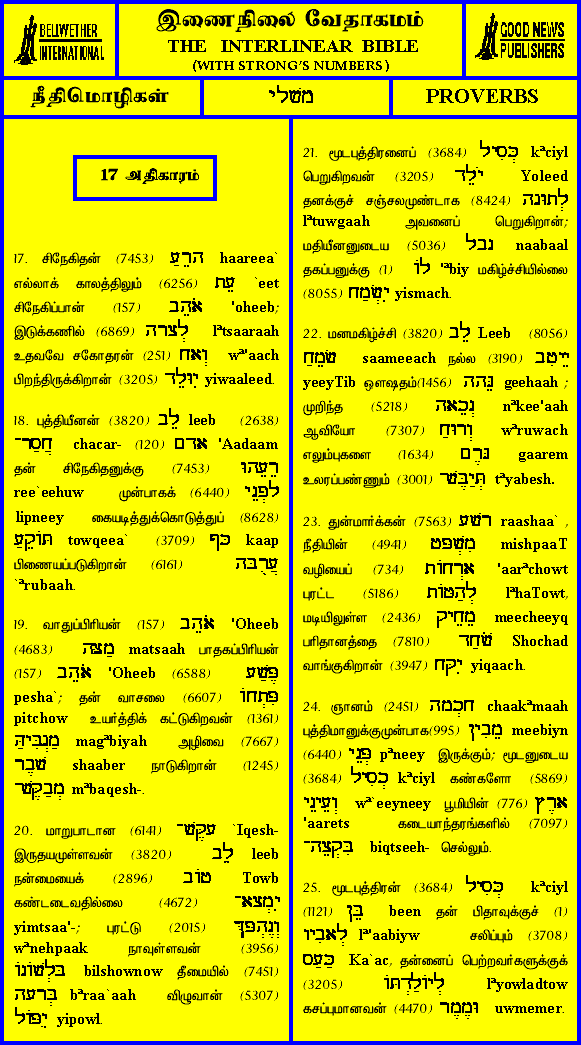 BELLWETHER
INTERNATIONAL
இணைநிலை வேதாகமம்
THE INTERLINEAR BIBLE
(WITH STRONG'S NUMBERS)
GOOD NEWS
PUBLISHERS
நீதிமொழிகள்
משלי
PROVERBS
17 அதிகாரம்
17. சிநேகிதன் (7453) הרֵעַ haareea`
எல்லாக் காலத்திலும் (6256) עֵת `eet
சிநேகிப்பான் (157) אֹהֵב 'oheeb;
இடுக்கணில் (6869) לְצרה lªtsaaraah
உதவவே சகோதரன் (251) וְאח wª'aach
பிறந்திருக்கிறான் (3205) יִוּלֵד yiwaaleed.
18. புத்தியீனன் (3820) לֵב leeb (2638)
חֲסַר־ chacar- (120) אדם 'Aadaam
தன் சிநேகிதனுக்கு (7453) רֵעֵהוּ
ree`eehuw முன்பாகக் (6440) לִפְנֵי
lipneey கையடித்துக்கொடுத்துப் (8628)
תּוֹקֵעַ towqeea` (3709) כּף kaap
பிணையப்படுகிறான் (6161) עֲרֻבּה
`ªrubaah.
19. வாதுப்பிரியன் (157) אֹהֵב 'Oheeb
(4683) מַצּה matsaah பாதகப்பிரியன்
(157) אֹהֵב 'Oheeb (6588) פֶּשַׁע
pesha`; தன் வாசலை (6607) פִּתְחוֹ
pitchow உயர்த்திக் கட்டுகிறவன் (1361)
מַגְבִּיהַּ magªbiyah அழிவை (7667)
שׁבֶר shaaber நாடுகிறான் (1245)
מְבַקֶּשׁ־ mªbaqesh-.
20. மாறுபாடான (6141) עִקֶּשׁ־ `Iqesh-
இருதயமுள்ளவன் (3820) לֵב leeb
நன்மையைக் (2896) טוֹב Towb
கண்டடைவதில்லை (4672) יִמְצא־
yimtsaa'-; புரட்டு (2015) וְנֶהְפּךְ
wªnehpaak நாவுள்ளவன் (3956)
בִּלְשׁוֹנוֹ bilshownow தீமையில் (7451)
בְּרעה bªraa`aah விழுவான் (5307)
יִפּוֹל yipowl.
21. மூடபுத்திரனைப் (3684) כְּסִיל kªciyl
பெறுகிறவன் (3205) יֹלֵד Yoleed
தனக்குச் சஞ்சலமுண்டாக (8424) לְתוּגה
lªtuwgaah அவனைப் பெறுகிறான்;
மதியீனனுடைய (5036) נבל naabaal
தகப்பனுக்கு (1) לוֹ 'ªbiy மகிழ்ச்சியில்லை
(8055) יִשְׂמַח yismach.
22. மனமகிழ்ச்சி (3820) לֵב Leeb (8056)
שׂמֵחַ saameeach நல்ல (3190) יֵיטִב
yeeyTib ஔஷதம்(1456) גֵּהה geehaah ;
முறிந்த (5218) נְכֵאה nªkee'aah
ஆவியோ (7307) וְרוּחַ wªruwach
எலும்புகளை (1634) גּרֶם gaarem
உலரப்பண்ணும் (3001) תְּיַבֶּשׁ tªyabesh.
23. துன்மார்க்கன் (7563) רשׁע raashaa` ,
நீதியின் (4941) מִשְׁפּט mishpaaT
வழியைப் (734) ארְחוֹת 'aarªchowt
புரட்ட (5186) לְהַטּוֹת lªhaTowt,
மடியிலுள்ள (2436) מֵחֵיק meecheeyq
பரிதானத்தை (7810) שֹׁחַד Shochad
வாங்குகிறான் (3947) יִקּח yiqaach.
24. ஞானம் (2451) חכְמה chaakªmaah
புத்திமானுக்குமுன்பாக(995) מֵבִין meebiyn
(6440) פְּנֵי pªneey இருக்கும்; மூடனுடைய
(3684) כְּסִיל kªciyl கண்களோ (5869)
וְעֵינֵי wª`eeyneey பூமியின் (776) ארֶץ
'aarets கடையாந்தரங்களில் (7097)
בִּקְצֵה־ biqtseeh- செல்லும்.
25. மூடபுத்திரன் (3684) כְּסִיל kªciyl
(1121) בֵּן been தன் பிதாவுக்குச் (1)
לְאבִיו lª'aabiyw சலிப்பும் (3708)
כַּעַס Ka`ac, தன்னைப் பெற்றவர்களுக்குக்
(3205) לְיוֹלַדְתּוֹ lªyowladtow
கசப்புமானவன் (4470) וּמֶמֶר uwmemer.